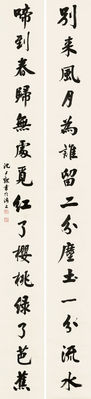 別來風月為誰留二分塵土一分流水
啼到春歸無處覓紅了櫻桃綠了芭蕉
沈尹默書於